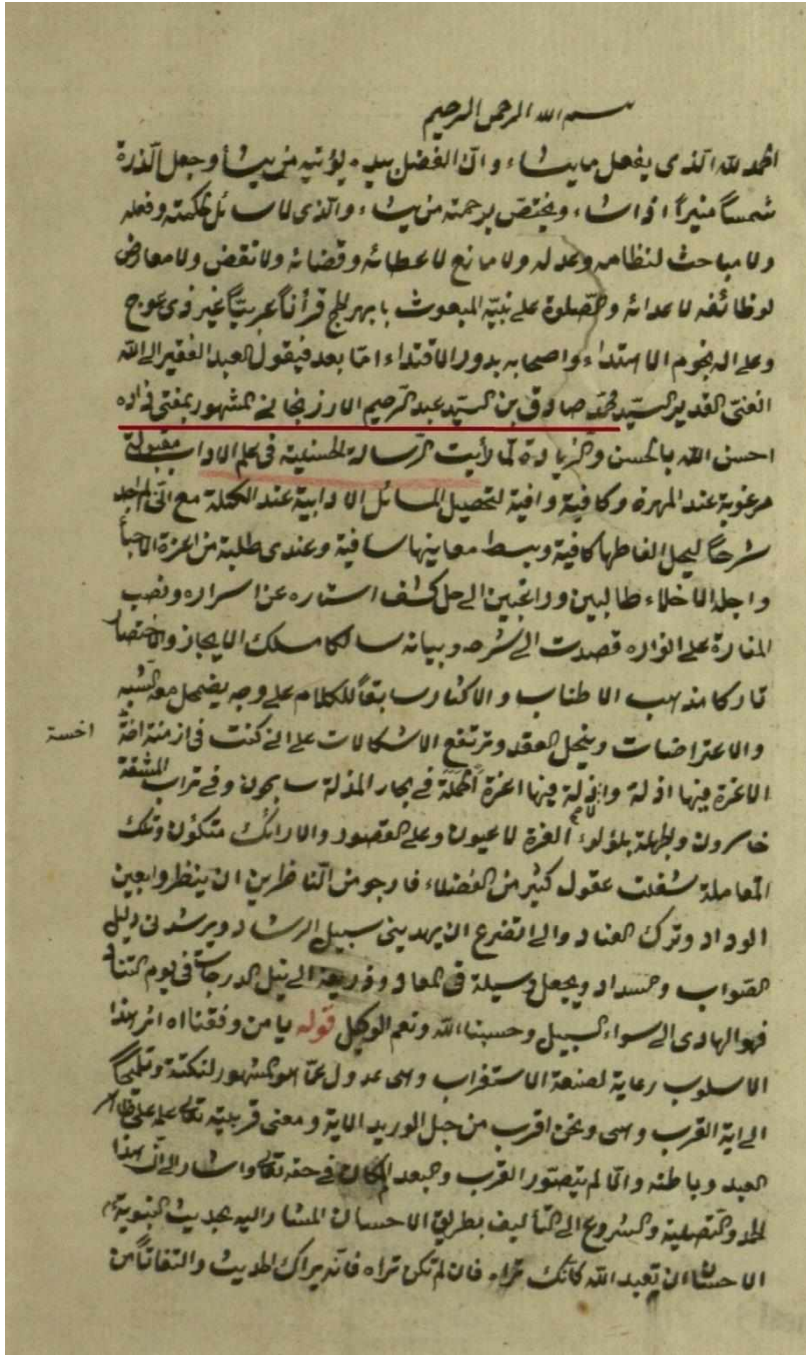 بسم الله الرحمن الرحيم
الحمد لله الذى يفعل ما يشاء وان الفضل بيده يؤتيه من يشاء وجعل الذرة
شمساً منيراً اذا شاء ويختص برحمته من يشاء والذى لا سائل لحكمته وفعله
ولا مباحث لنظامه وعدله ولا مانع لاعطائه وقضائه ولا نقض ولا معارض
لوظائفه لاعدائه والصلوة على نبيه المبعوث بابهر الحجج قرأناً عربيّاً غير ذى عوج
وعلى اله نجوم الاهتداء واصحابه بدور الاقتداء امّا بعد فيقول العبد الفقير الى الله
الغنى القدير السيّد محمّد صادق بن السيّد عبد الرحيم الارزنجانى المشهور بمفتى زاده
احسن الله بالحسن والزيادة لمّا رأيت الرسالة الحسنية فى علم الاداب مقبولة
مرغوبة عند المهرة وكافية وافية لتحصيل المسائل الادابية عند الكملة مع انى لم اجد
شرحاً ليحل الفاظها كافية وبسط معاينها سافية وعندى طلبة من اعزة الاحبا
واجلة الاخلاء طالبين وراغبين الى حل كشف استاره عن اسراره ونصب
المنارة على انواره قصدت الى شرحه وبيانه سالكا مسلك الايجاز والاختصار
تاركا مذهب الاطناب والاكثار سابقاً للكلام على وجه يضمحل معه الشبه
والاعتراضات وينحل العقد وترتفع الاشكالات على انى كنت فى ازمنة
اخسة
الاعزة فيها اذلة والاذلة فيها اعزة فى بحار المذلة سابحون وفى تراب المشقة
خاسرون والجهلة بلؤلؤ العزة لاعبون وعلى القصور والارائك متكؤن وتلك
المعاملة شغلت عقول كثير من الفضلاء فارجو من الناظرين ان ينظروا بعين
الوداد وترك العناد والى اتضرع ان يهدينى سبيل الرشاد ويرشدنى دليل
الصواب والسداد ويجعل وسيلة فى المعاد وذريعة الى نيل الدرجات فى يوم التناد
فهو الهادى الى سواء السبيل وحسبنا الله ونعم الوكيل قوله يا من وفقنا اه اثر هذا
الاسلوب رعاية لصنعة الاستغراب وهى عدول عمّا هو المشهور لنكتة وتلميحاً
الى اية القرب وهى ونحن اقرب من حبل الوريد الاية ومعنى قربيته تعالى علمه على ظاهر
العبد وباطنه والّا لم يتصور القرب والبعد المكان فى حقه تعالى واشار الى ان هذا
الحمد والتصلية والشروع الى التأليف بطريق الاحسان المشار اليه بحديث النبوية
الاحسان ان تعبد الله كانّك تراه فان لم تكن تراه فانّه يراك الحديث والتفاتاً من